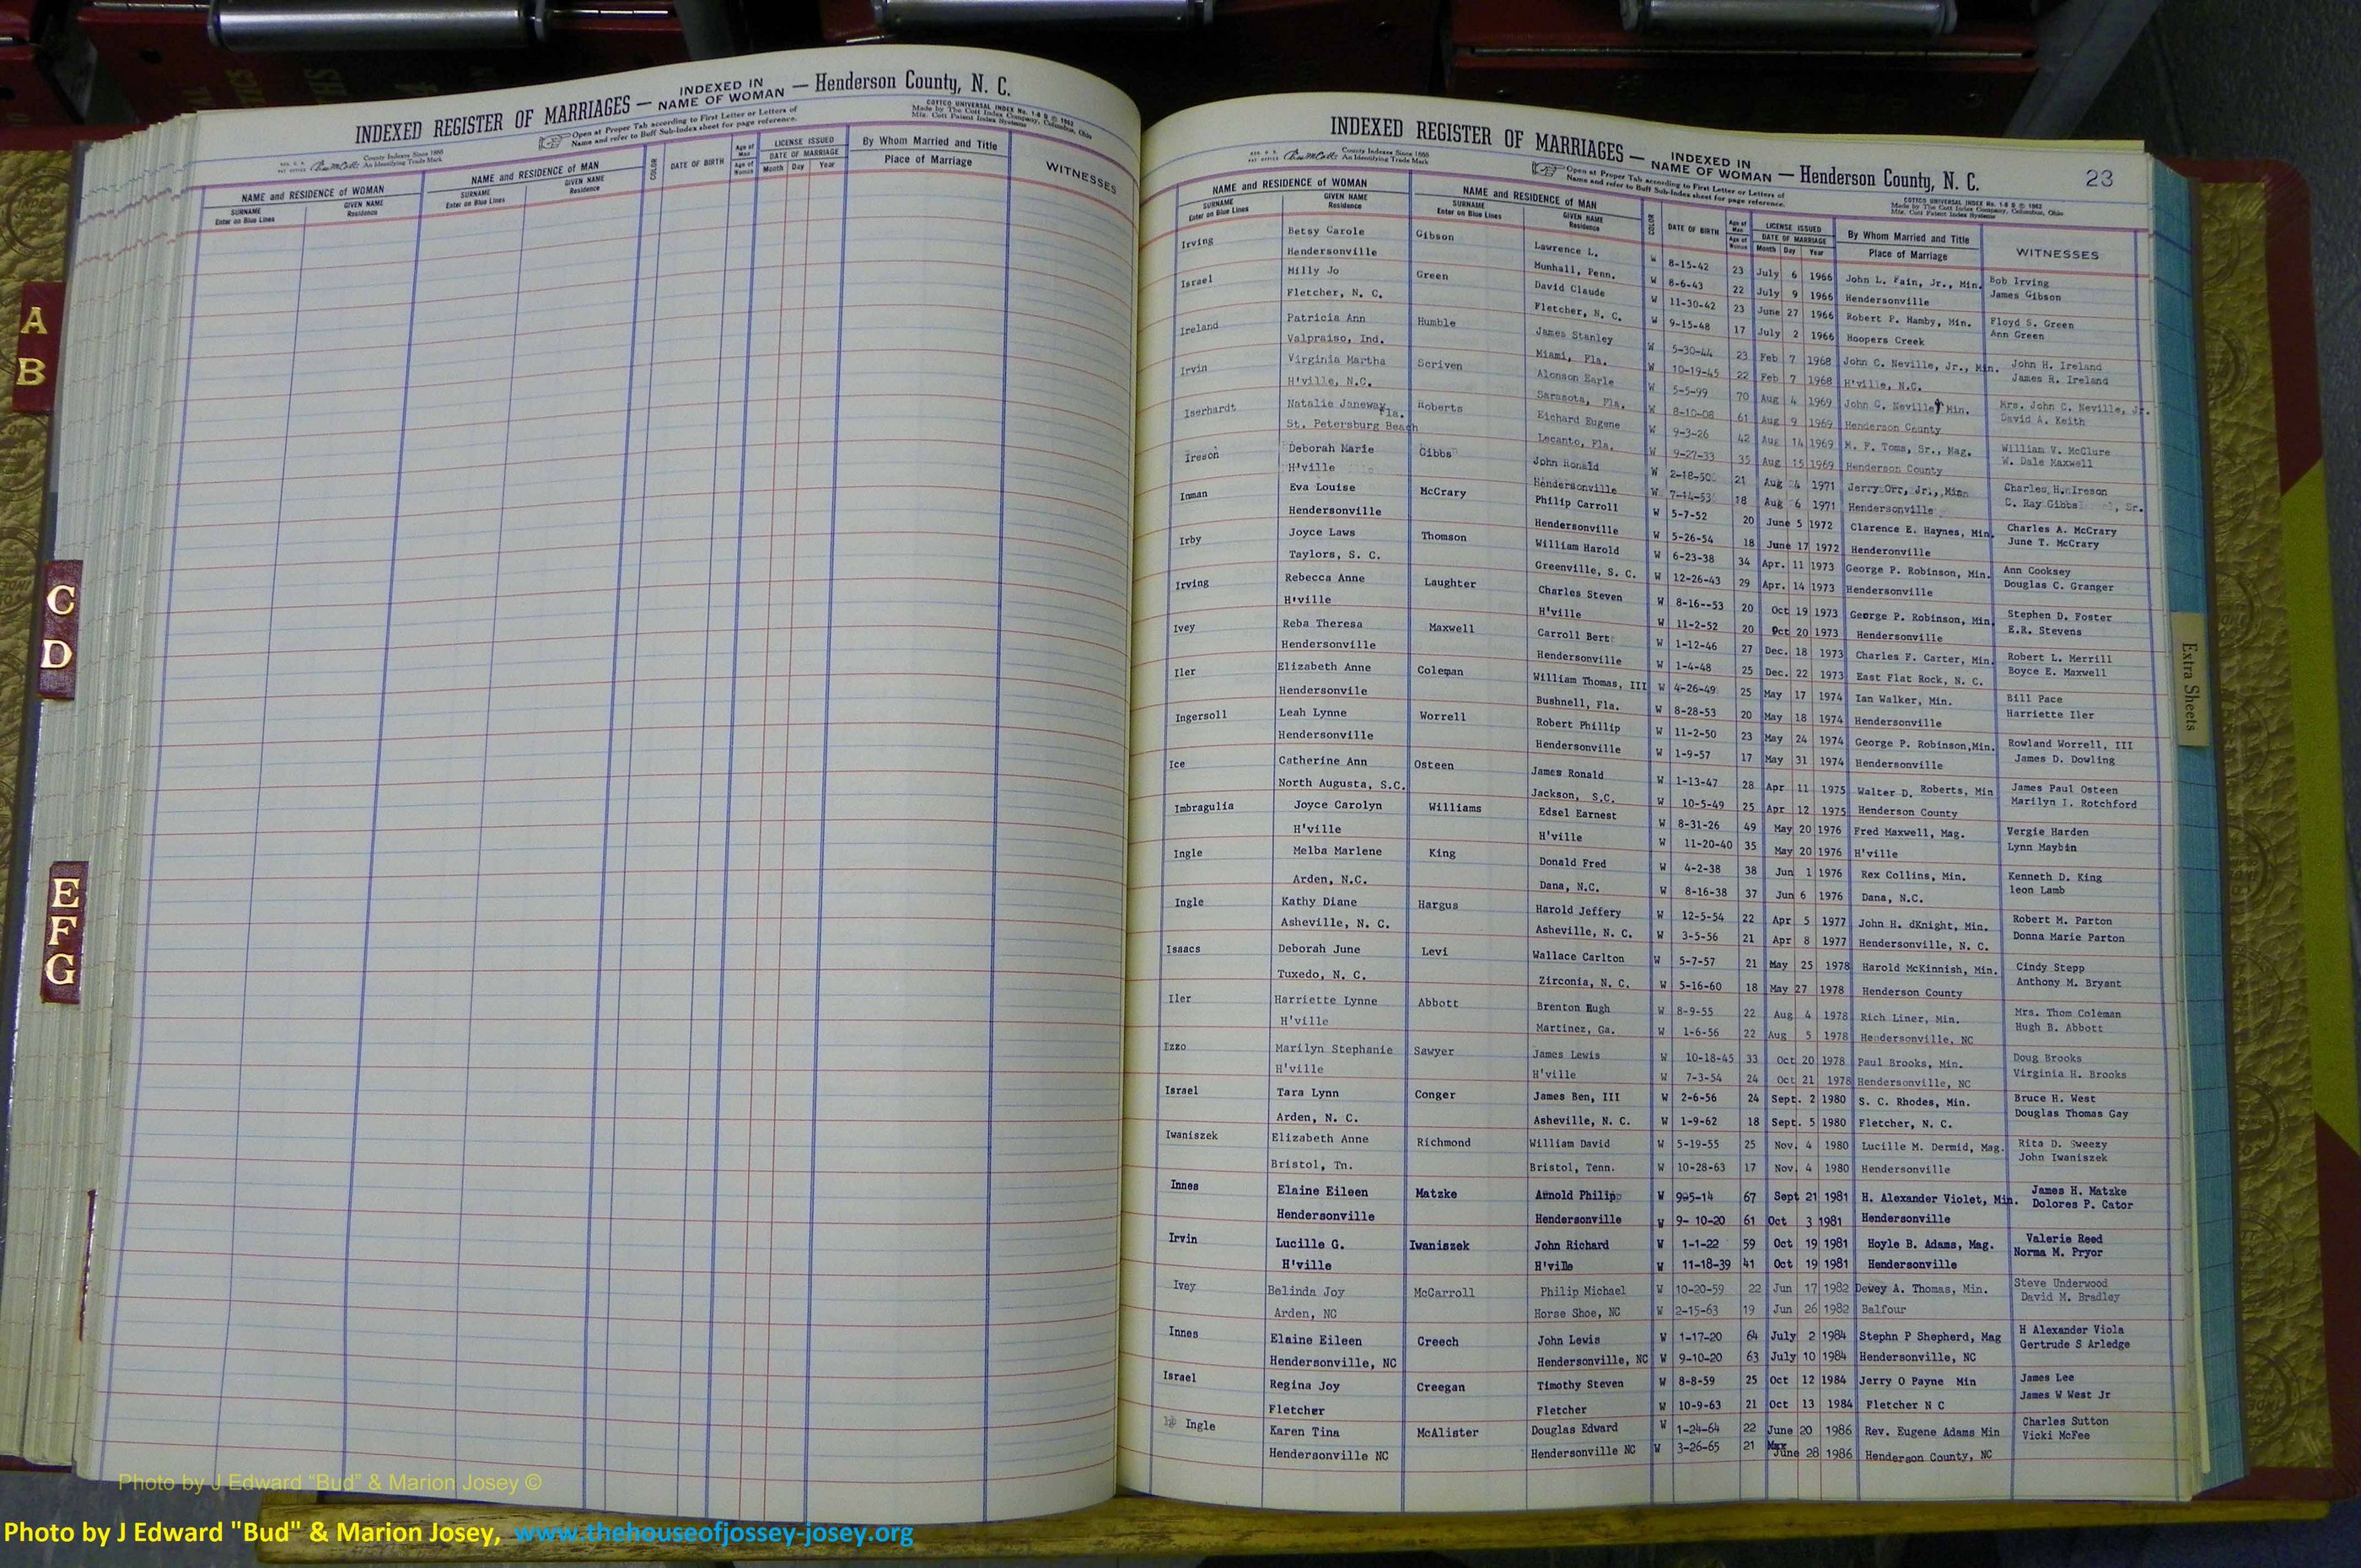 INDEXED REGISTER OF MARRIAGES — INDEXED IN NAME OF WOMAN — Henderson County, N. C.
Open at Proper Tab according to First Letter or Letters of
Name and refer to Buff Sub-Index sheet for page reference.
COTTCO UNIVERSAL INDEX No. 1-6 B © 1962
Made by The Cott Index Company, Columbus, Ohio
Mfg. Cott Patent Index Systems
County Indexes Since 1888
An Identifying Trade Mark
NAME and RESIDENCE of WOMAN NAME and RESIDENCE of MAN COLOR DATE OF BIRTH Age of Man Age of Woman LICENSE ISSUED DATE OF MARRIAGE Month Day Year By Whom Married and Title Place of Marriage WITNESSES
SURNAME Enter on Blue Lines GIVEN NAME Residence SURNAME Enter on Blue Lines GIVEN NAME Residence
A
B
C
D
E
F
G
INDEXED REGISTER OF MARRIAGES — INDEXED IN NAME OF WOMAN — Henderson County, N. C. 23
Open at Proper Tab according to First Letter or Letters of
Name and refer to Buff Sub-Index sheet for page reference.
COTTCO UNIVERSAL INDEX No. 1-6 B © 1962
Made by The Cott Index Company, Columbus, Ohio
Mfg. Cott Patent Index Systems
County Indexes Since 1888
An Identifying Trade Mark
NAME and RESIDENCE OF WOMAN NAME and RESIDENCE of MAN COLOR DATE OF BIRTH Age of Man Age of Woman LICENSE ISSUED DATE OF MARRIAGE Month Day Year By Whom Married and Title Place of Marriage WITNESSES
SURNAME Enter on Blue Lines GIVEN NAME Residence SURNAME Enter on Blue Lines GIVEN NAME Residence
Irving Betsy Carole Gibson Lawrence L. W 8-15-42 23 July 6 1966 John L. Fain, Jr., Min. Bob Irving
Hendersonville Munhall, Penn. W 8-6-43 22 July 9 1966 Hendersonville James Gibson
Israel Milly Jo Green David Claude W 11-30-42 23 June 27 1966 Robert P. Hamby, Min. Floyd S. Green
Fletcher, N. C. Fletcher, N. C. W 9-15-48 17 July 2 1966 Hoopers Creek Ann Green
Ireland Patricia Ann Humble James Stanley W 5-30-44 23 Feb 7 1968 John C. Neville, Jr., Min. John H. Ireland
Valpraiso, Ind. Miami, Fla. W 10-19-45 22 Feb 7 1968 H'ville, N.C. James R. Ireland
Irvin Virginia Martha Scriven Alonson Earle W 5-5-99 70 Aug 4 1969 John C. Neville, Min. Mrs. John C. Neville, Jr.
H'ville, N.C. Sarasota, Fla. W 8-10-08 61 Aug 9 1969 Henderson County David A. Keith
Iserhardt Natalie Janeway Roberts Eichard Eugene W 9-3-26 42 Aug 14 1969 M. F. Toms, Sr., Mag. William V. McClure
St. Petersburg Beach Fla. Lecanto, Fla. W 9-27-33 35 Aug 15 1969 Henderson County W. Dale Maxwell
Ireson Deborah Marie Gibbs John Ronald W 2-18-50 21 Aug 4 1971 Jerry Orr, Jr., Minn Charles H. Ireson
H'ville Hendersonville W 7-14-53 18 Aug 6 1971 Hendersonville C. Ray Gibbs , Sr.
Inman Eva Louise McCrary Philip Carroll W 5-7-52 20 June 5 1972 Clarence E. Haynes, Min. Charles A. McCrary
Hendersonville Hendersonville W 5-26-54 18 June 17 1972 Henderonville June T. McCrary
Irby Joyce Laws Thomson William Harold W 6-23-38 34 Apr. 11 1973 George P. Robinson, Min. Ann Cooksey
Taylors, S. C. Greenville, S. C. W 12-26-43 29 Apr. 14 1973 Hendersonville Douglas C. Granger
Irving Rebecca Anne Laughter Charles Steven W 8-16--53 20 Oct 19 1973 George P. Robinson, Min. Stephen D. Foster
H'ville H'ville W 11-2-52 20 Oct 20 1973 Hendersonville E.R. Stevens
Ivey Reba Theresa Maxwell Carroll Bert W 1-12-46 27 Dec. 18 1973 Charles F. Carter, Min. Robert L. Merrill
Hendersonville Hendersonville W 1-4-48 25 Dec. 22 1973 East Flat Rock, N. C. Boyce E. Maxwell
Iler Elizabeth Anne Coleman William Thomas, III W 4-26-49 25 May 17 1974 Ian Walker, Min. Bill Pace
Hendersonvile Bushnell, Fla. W 8-28-53 20 May 18 1974 Hendersonville Harriette Iler
Ingersoll Leah Lynne Worrell Robert Phillip W 11-2-50 23 May 24 1974 George P. Robinson,Min. Rowland Worrell, III
Hendersonville Hendersonville W 1-9-57 17 May 31 1974 Hendersonville James D. Dowling
Ice Catherine Ann Osteen James Ronald W 1-13-47 28 Apr 11 1975 Walter D. Roberts, Min James Paul Osteen
North Augusta, S.C. Jackson, S.C. W 10-5-49 25 Apr 12 1975 Henderson County Marilyn I. Rotchford
Imbragulia Joyce Carolyn Williams Edsel Earnest W 8-31-26 49 May 20 1976 Fred Maxwell, Mag. Vergie Harden
H'ville H'ville W 11-20-40 35 May 20 1976 H'ville Lynn Maybin
Ingle Melba Marlene King Donald Fred W 4-2-38 38 Jun 1 1976 Rex Collins, Min. Kenneth D. King
Arden, N.C. Dana, N.C. W 8-16-38 37 Jun 6 1976 Dana, N.C. leon Lamb
Ingle Kathy Diane Hargus Harold Jeffery W 12-5-54 22 Apr 5 1977 John H. dKnight, Min. Robert M. Parton
Asheville, N. C. Asheville, N. C. W 3-5-56 21 Apr 8 1977 Hendersonville, N. C. Donna Marie Parton
Isaacs Deborah June Levi Wallace Carlton W 5-7-57 21 May 25 1978 Harold McKinnish, Min. Cindy Stepp
Tuxedo, N. C. Zirconia, N. C. W 5-16-60 18 May 27 1978 Henderson County Anthony M. Bryant
Iler Harriette Lynne Abbott Brenton Hugh W 8-9-55 22 Aug 4 1978 Rich Liner, Min. Mrs. Thom Coleman
H'ville Martinez, Ga. W 1-6-56 22 Aug 5 1978 Hendersonville, NC Hugh B. Abbott
Izzo Marilyn Stephanie Sawyer James Lewis W 10-18-45 33 Oct 20 1978 Paul Brooks, Min. Doug Brooks
H'ville H'ville W 7-3-54 24 Oct 21 1978 Hendersonville, NC Virginia H. Brooks
Israel Tara Lynn Conger James Ben, III W 2-6-56 24 Sept. 2 1980 S. C. Rhodes, Min. Bruce H. West
Arden, N. C. Asheville, N. C. W 1-9-62 18 Sept. 5 1980 Fletcher, N. C. Douglas Thomas Gay
Iwaniszek Elizabeth Anne Richmond William David W 5-19-55 25 Nov. 4 1980 Lucille M. Dermid, Mag. Rita D. Sweezy
Bristol, Tn. Bristol, Tenn. W 10-28-63 17 Nov. 4 1980 Hendersonville John Iwaniszek
Innes Elaine Eileen Matzke Arnold Philip W 9-5-14 67 Sept 21 1981 H. Alexander Violet, Min. James H. Matzke
Hendersonville Hendersonville W 9- 10-20 61 Oct 3 1981 Hendersonville Dolores P. Cator
Irvin Lucille G. Iwaniszek John Richard W 1-1-22 59 Oct 19 1981 Hoyle B. Adams, Mag. Valerie Reed
H'ville H'ville W 11-18-39 41 Oct 19 1981 Hendersonville Norma M. Pryor
Ivey Belinda Joy McCarroll Philip Michael W 10-20-59 22 Jun 17 1982 Dewey A. Thomas, Min. Steve Underwood
Arden, NC Horse Shoe, NC W 2-15-63 19 Jun 26 1982 Balfour David M. Bradley
Innes Elaine Eileen Creech John Lewis W 1-17-20 64 July 2 1984 Stephn P Shepherd, Mag H Alexander Viola
Hendersonville, NC Hendersonville, NC W 9-10-20 63 July 10 1984 Hendersonville, NC Gertrude S Arledge
Israel Regina Joy Creegan Timothy Steven W 8-8-59 25 Oct 12 1984 Jerry O Payne Min James Lee
Fletcher Fletcher W 10-9-63 21 Oct 13 1984 Fletcher N C James W West Jr
Ingle Karen Tina McAlister Douglas Edward W 1-24-64 22 June 20 1986 Rev. Eugene Adams Min Charles Sutton
Hendersonville NC Hendersonville NC W 3-26-65 21 June 28 1986 Henderson County, NC Vicki McFee
Extra Sheets
Photo by J Edward "Bud" & Marion Josey ©
Photo by J Edward "Bud" & Marion Josey, www.thehouseofjossey-josey.org